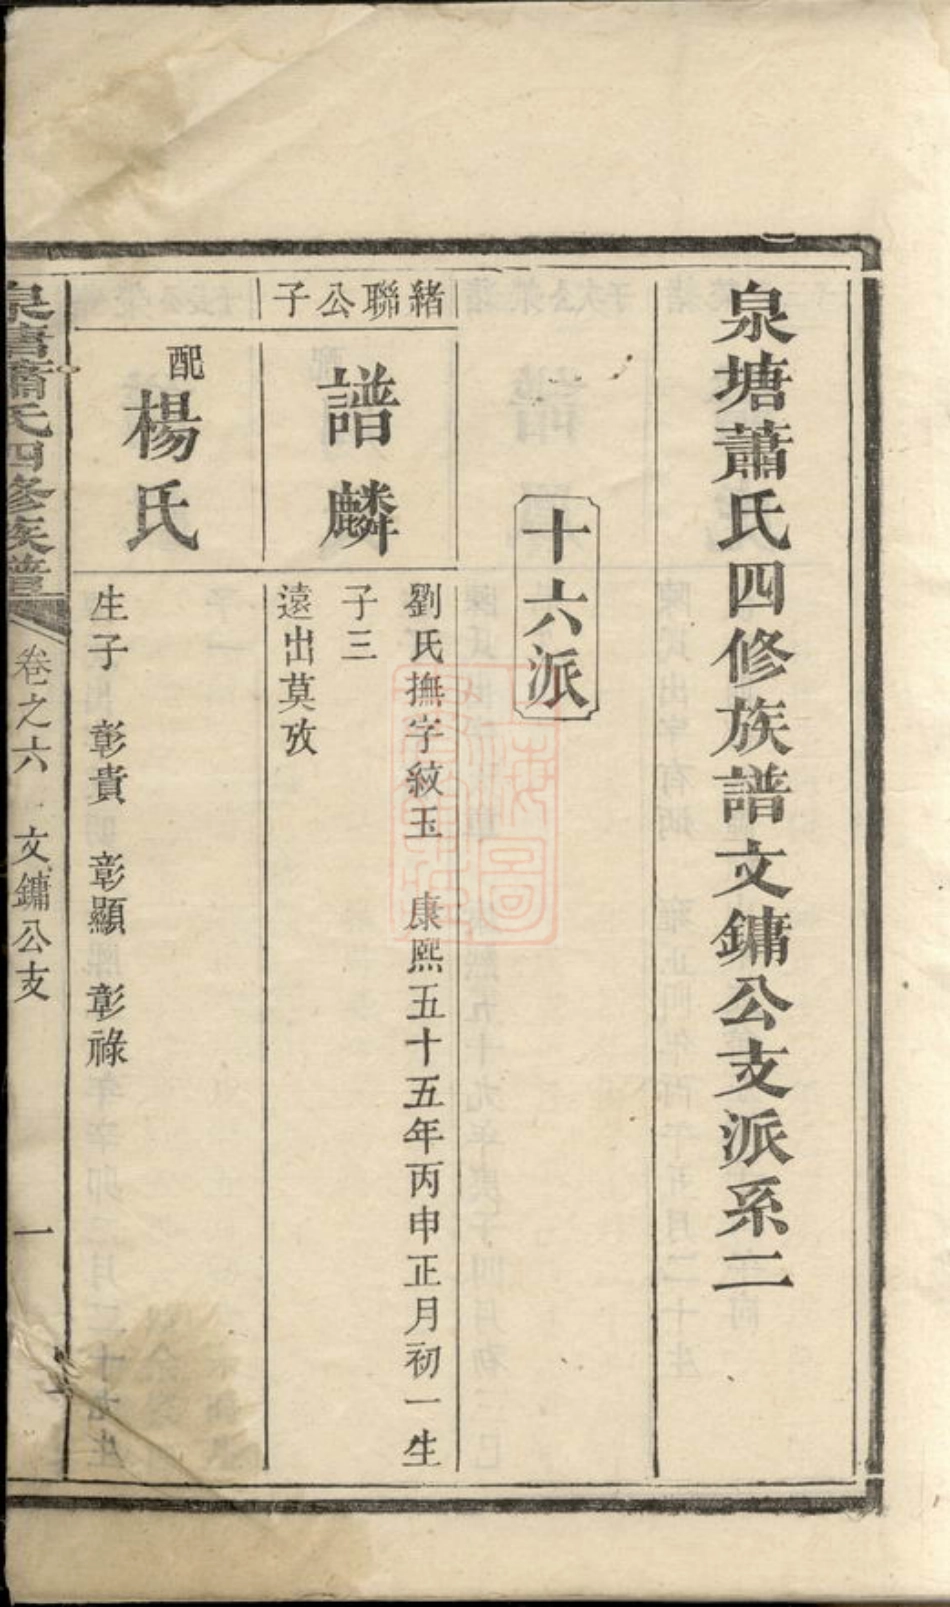 泉塘蕭氏四修族譜文鏞公支派系二
十六派
緒聯公子
譜麟
劉氏撫字紋玉 康熙五十五年丙申正月初一生
子三
遠出莫攷
配楊氏
生子 彰貴 彰顯 彰祿
泉塘蕭氏四修族譜 卷之六 文鏞公支 一